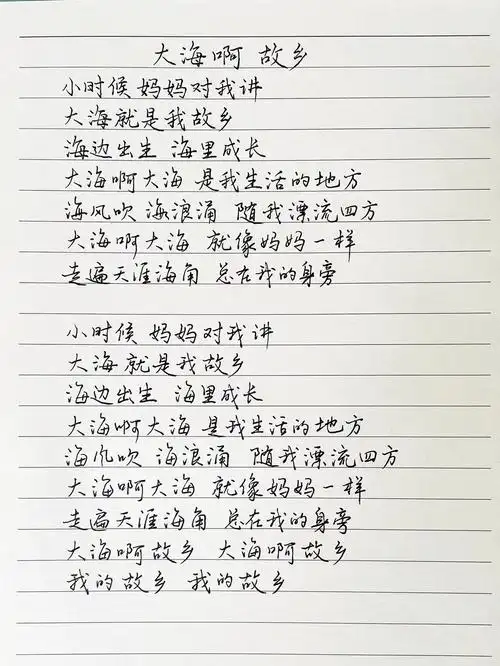 大海啊 故乡
小时候 妈妈对我讲
大海就是我故乡
海边出生 海里成长
大海啊大海 是我生活的地方
海风吹 海浪涌 随我漂流四方
大海啊大海 就像妈妈一样
走遍天涯海角 总在我的身旁
小时候 妈妈对我讲
大海就是我故乡
海边出生 海里成长
大海啊大海 是我生活的地方
海风吹 海浪涌 随我漂流四方
大海啊大海 就像妈妈一样
走遍天涯海角 总在我的身旁
大海啊故乡 大海啊故乡
我的故乡 我的故乡